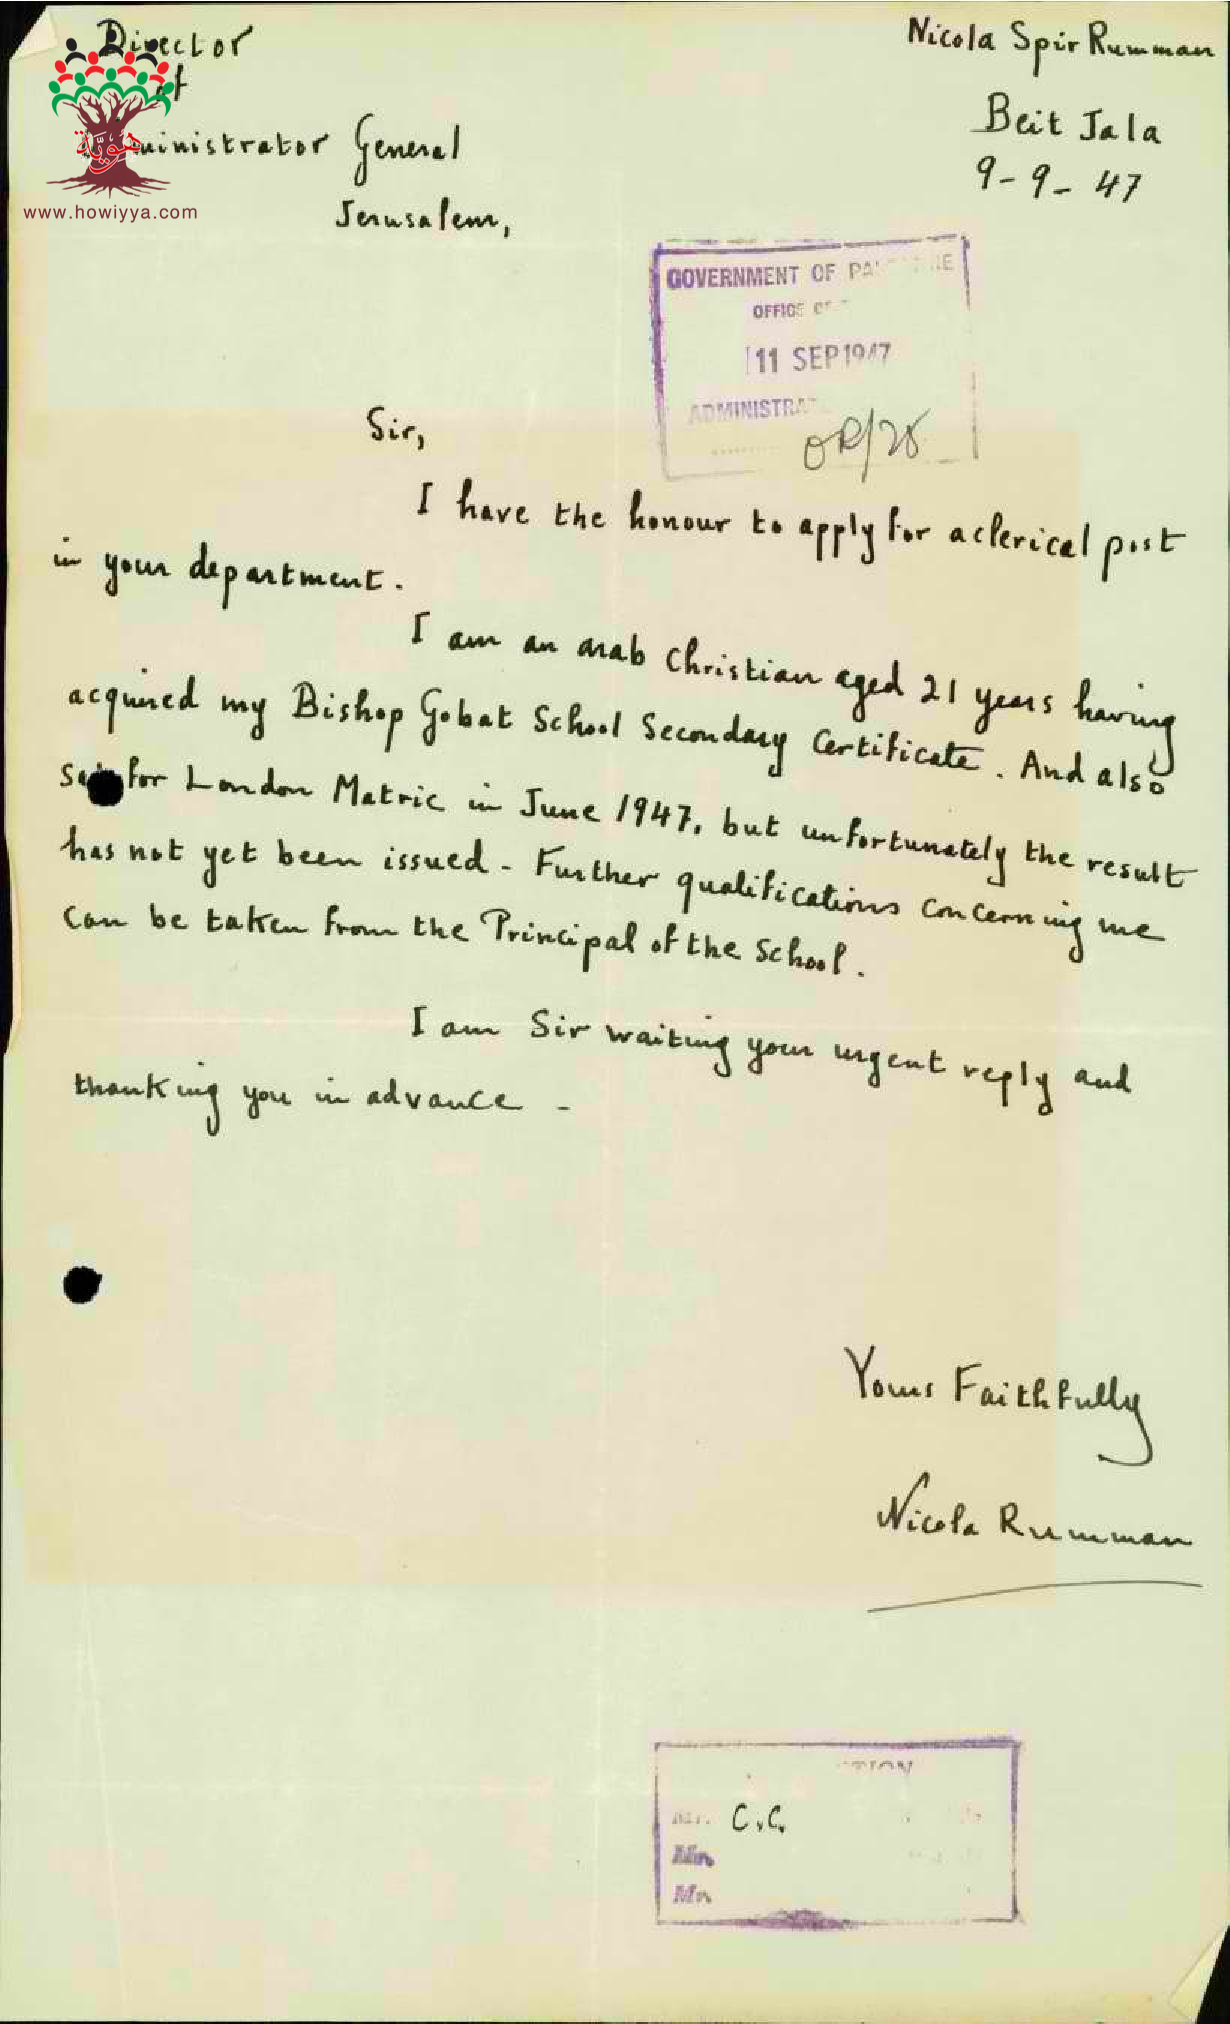 Director
of
ministrator General
Jerusalem,
Nicola Spir Rumman
Beit Jala
9-9-47
هوية
www.howiyya.com
GOVERNMENT OF PA
OFFICE OF
11 SEP 1947
ADMINISTRA
OR/25
Sir,
I have the honour to apply for a clerical post
in your department.
I am an arab Christian aged 21 years having
acquired my Bishop Gobat School Secondary Certificate. And also
for London Matric in June 1947, but unfortunately the result
has not yet been issued - Further qualifications concerning me
can be taken from the Principal of the School.
I am Sir waiting your urgent reply and
thanking you in advance -
Yours Faithfully
Nicola Rumman
TION
Mr. C.C.
Mr.
Mr.